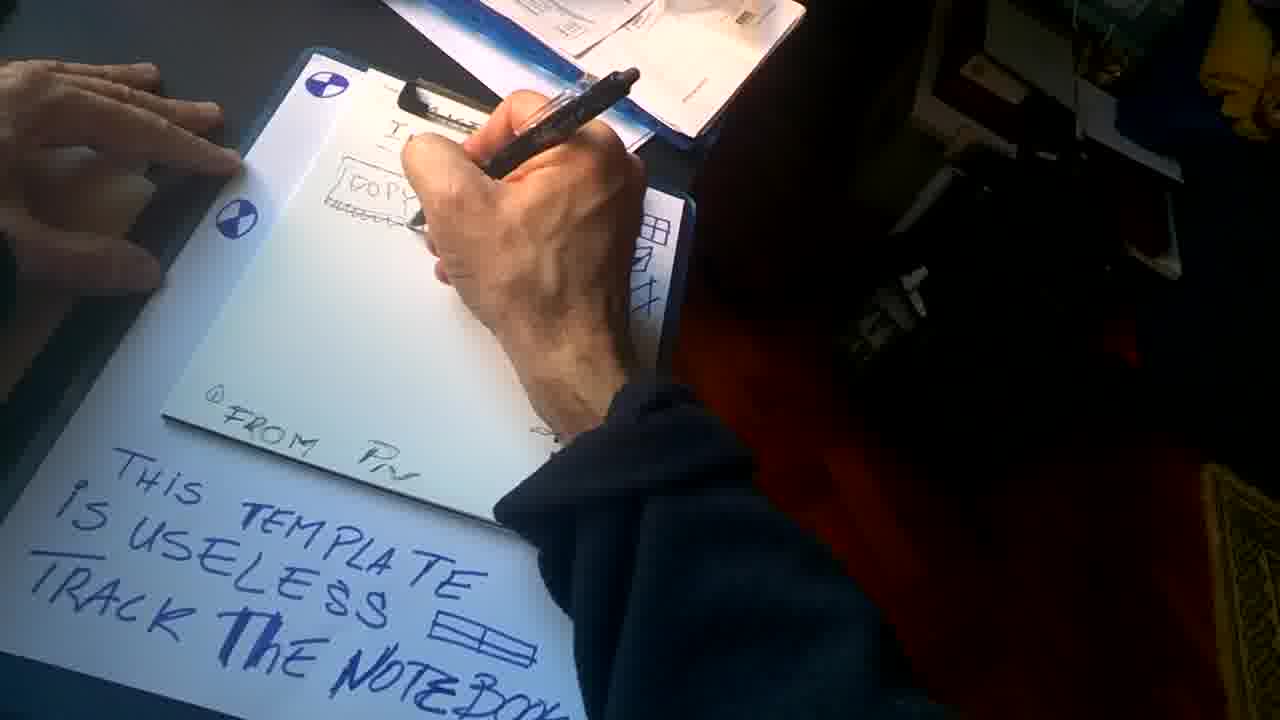 COPY
① FROM PN
THIS TEMPLATE
IS USELESS
TRACK THE NOTEBOOK